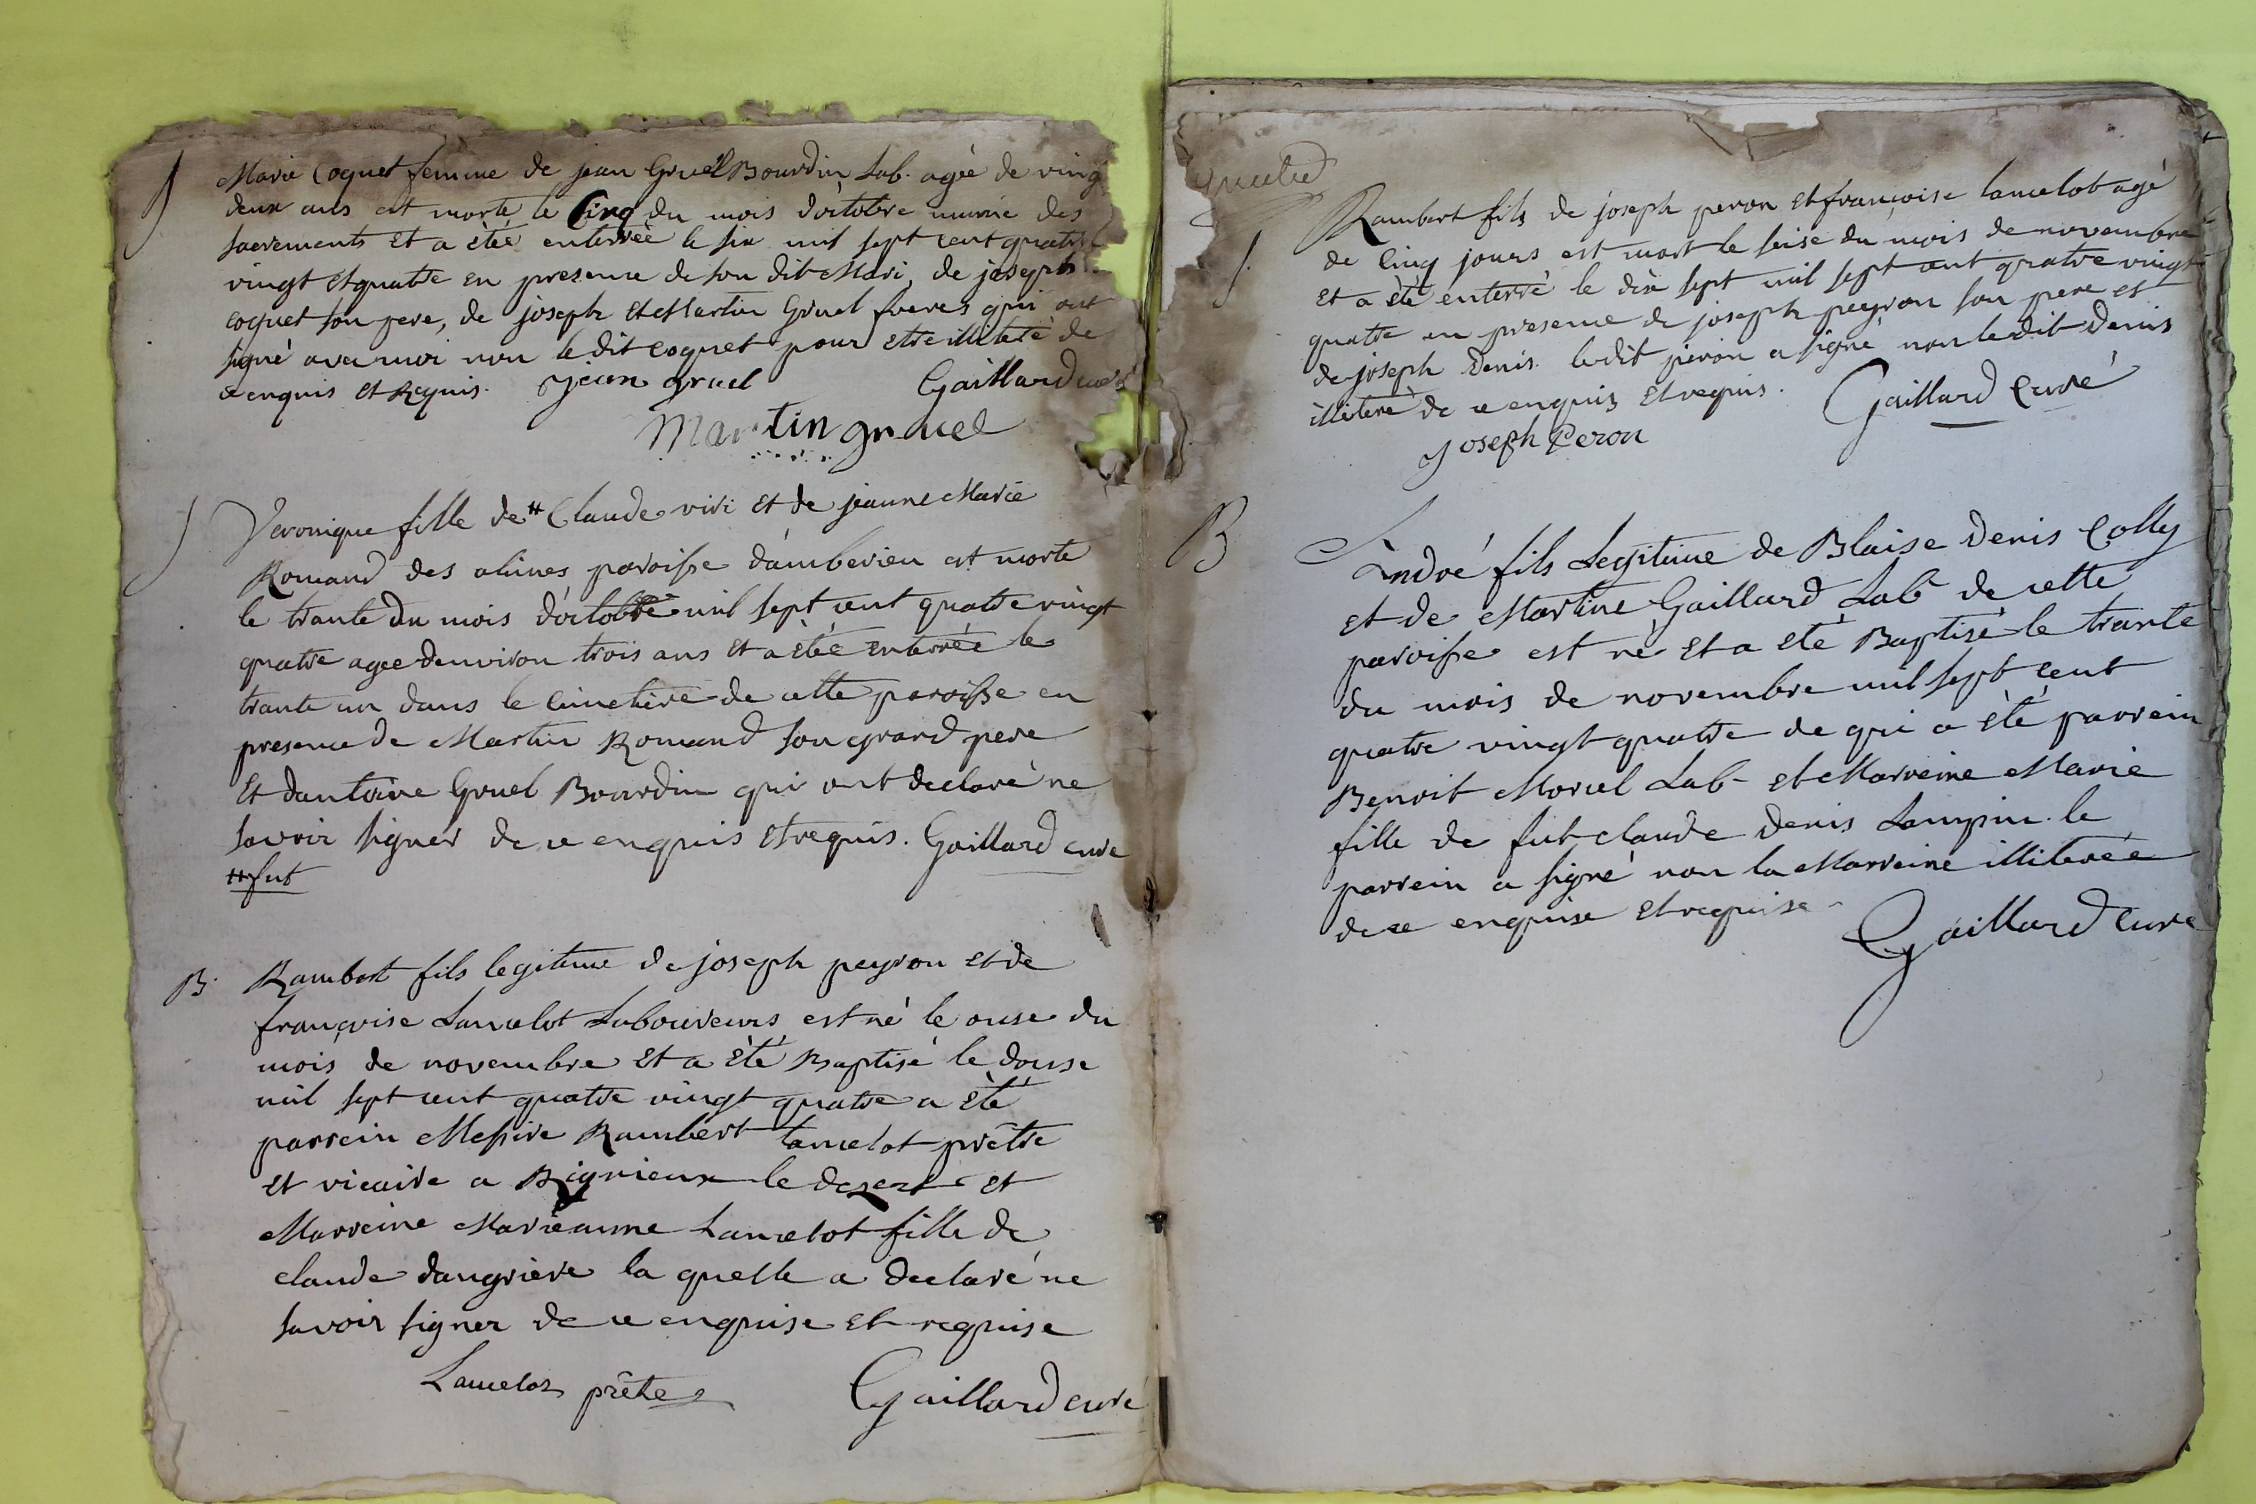 S
Marie Coquet femme de jean Gruel Bourdin Lab. agée de ving
deux ans est morte le Cinq du mois d'octobre munie des
sacrements et a étéé enterréé le six mil sept cent quatre
vingt et quatre en presence de son dit Mari, de joseph
coquet son pere, de joseph et Martin Gruel freres qui ont
signé avec moi non le dit coquet pour etre illiteré de
ce enquis et Requis. jean gruel Gaillard curé
Martin gruel
S
Veronique fille de # Claude vivi et de jeanne Marie
Romand des alimes paroisse d'amberieu est morte
le trante du mois d'octobre mil sept cent quatre vingt
quatre agee denviron trois ans et a étéé enterréé le
trante un dans le cimetiere de cette paroisse en
presence de Martin Romand son grand pere
Et dantoine Gruel Bourdin qui ont declaré ne
savoir signer de ce enquis et requis. Gaillard curé
# fut
B. Rambert fils legitime de joseph peyron et de
françoise Lancelot Laboureurs est né le onse du
mois de novembre et a été Baptisé le dousse
mil sept cent quatre vingt quatre a été
parrein Messire Rambert Lancelot prêtre
et vicaire a Rignieux le desert et
Marreine Marieanne Lancelot fille de
claude dangriere la quelle a declaré ne
savoir signer de ce enquise et requise
Lancelot prêtre Gaillard curé
S.
Rambert fils de joseph peron et françoise lancelot agé
de Cinq jours est mort le seise du mois de novembre
et a été enterré le dix sept mil sept cent quatre vingt
quatre en presence de joseph peyron son pere et
de joseph Denis. ledit peron a signé non ledit Denis
illiteré de ce enquis et requis. Gaillard Curé
joseph Peron
B
André fils Legitime de Blaise Denis Colly
et de Martine Gaillard Lab. de cette
paroisse est né et a eté Baptisé le trante
du mois de novembre mil sept cent
quatre vingt quatre de qui a été parrein
Benoit Morel Lab. et Marreine Marie
fille de fut claude Denis Lampin. le
parrein a signé non la Marreine illiterée
de ce enquise et requise
Gaillard Curé